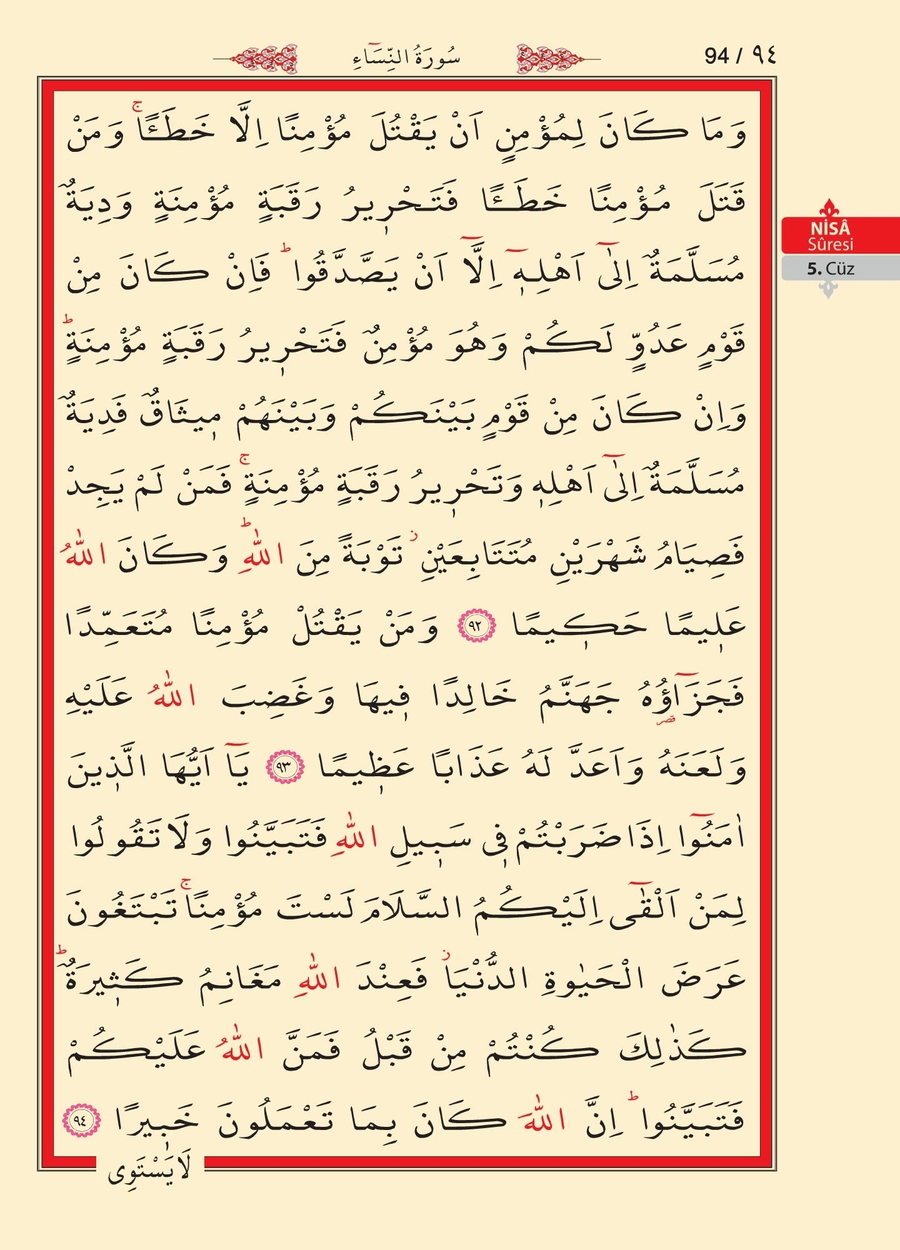 سُورَةُ النِّسَٓاءِ
94 / ٩٤
وَمَا كَانَ لِمُؤْمِنٍ اَنْ يَقْتُلَ مُؤْمِنًا اِلَّا خَطَـًٔاۚ وَمَنْ
قَتَلَ مُؤْمِنًا خَطَـًٔا فَتَحْرٖيرُ رَقَبَةٍ مُؤْمِنَةٍ وَدِيَةٌ
مُسَلَّمَةٌ اِلٰٓى اَهْلِهٖٓ اِلَّٓا اَنْ يَصَّدَّقُواؕ فَاِنْ كَانَ مِنْ
قَوْمٍ عَدُوٍّ لَكُمْ وَهُوَ مُؤْمِنٌ فَتَحْرٖيرُ رَقَبَةٍ مُؤْمِنَةٍؕ
وَاِنْ كَانَ مِنْ قَوْمٍ بَيْنَكُمْ وَبَيْنَهُمْ مٖيثَاقٌ فَدِيَةٌ
مُسَلَّمَةٌ اِلٰٓى اَهْلِهٖ وَتَحْرٖيرُ رَقَبَةٍ مُؤْمِنَةٍۚ فَمَنْ لَمْ يَجِدْ
فَصِيَامُ شَهْرَيْنِ مُتَتَابِعَيْنِؗ تَوْبَةً مِنَ اللّٰهِؕ وَكَانَ اللّٰهُ
عَلٖيمًا حَكٖيمًا ٩٢ وَمَنْ يَقْتُلْ مُؤْمِنًا مُتَعَمِّدًا
فَجَزَٓاؤُ۬هُ جَهَنَّمُ خَالِدًا فٖيهَا وَغَضِبَ اللّٰهُ عَلَيْهِ
وَلَعَنَهُ وَاَعَدَّ لَهُ عَذَابًا عَظٖيمًا ٩٣ يَٓا اَيُّهَا الَّذٖينَ
اٰمَنُٓوا اِذَا ضَرَبْتُمْ فٖى سَبٖيلِ اللّٰهِ فَتَبَيَّنُوا وَلَا تَقُولُوا
لِمَنْ اَلْقٰٓى اِلَيْكُمُ السَّلَامَ لَسْتَ مُؤْمِنًاۚ تَبْتَغُونَ
عَرَضَ الْحَيٰوةِ الدُّنْيَاؗ فَعِنْدَ اللّٰهِ مَغَانِمُ كَثٖيرَةٌؕ
كَذٰلِكَ كُنْتُمْ مِنْ قَبْلُ فَمَنَّ اللّٰهُ عَلَيْكُمْ
فَتَبَيَّنُواؕ اِنَّ اللّٰهَ كَانَ بِمَا تَعْمَلُونَ خَبٖيرًا ٩٤
لَا يَسْتَوِى
NİSÂ
Sûresi
5. Cüz